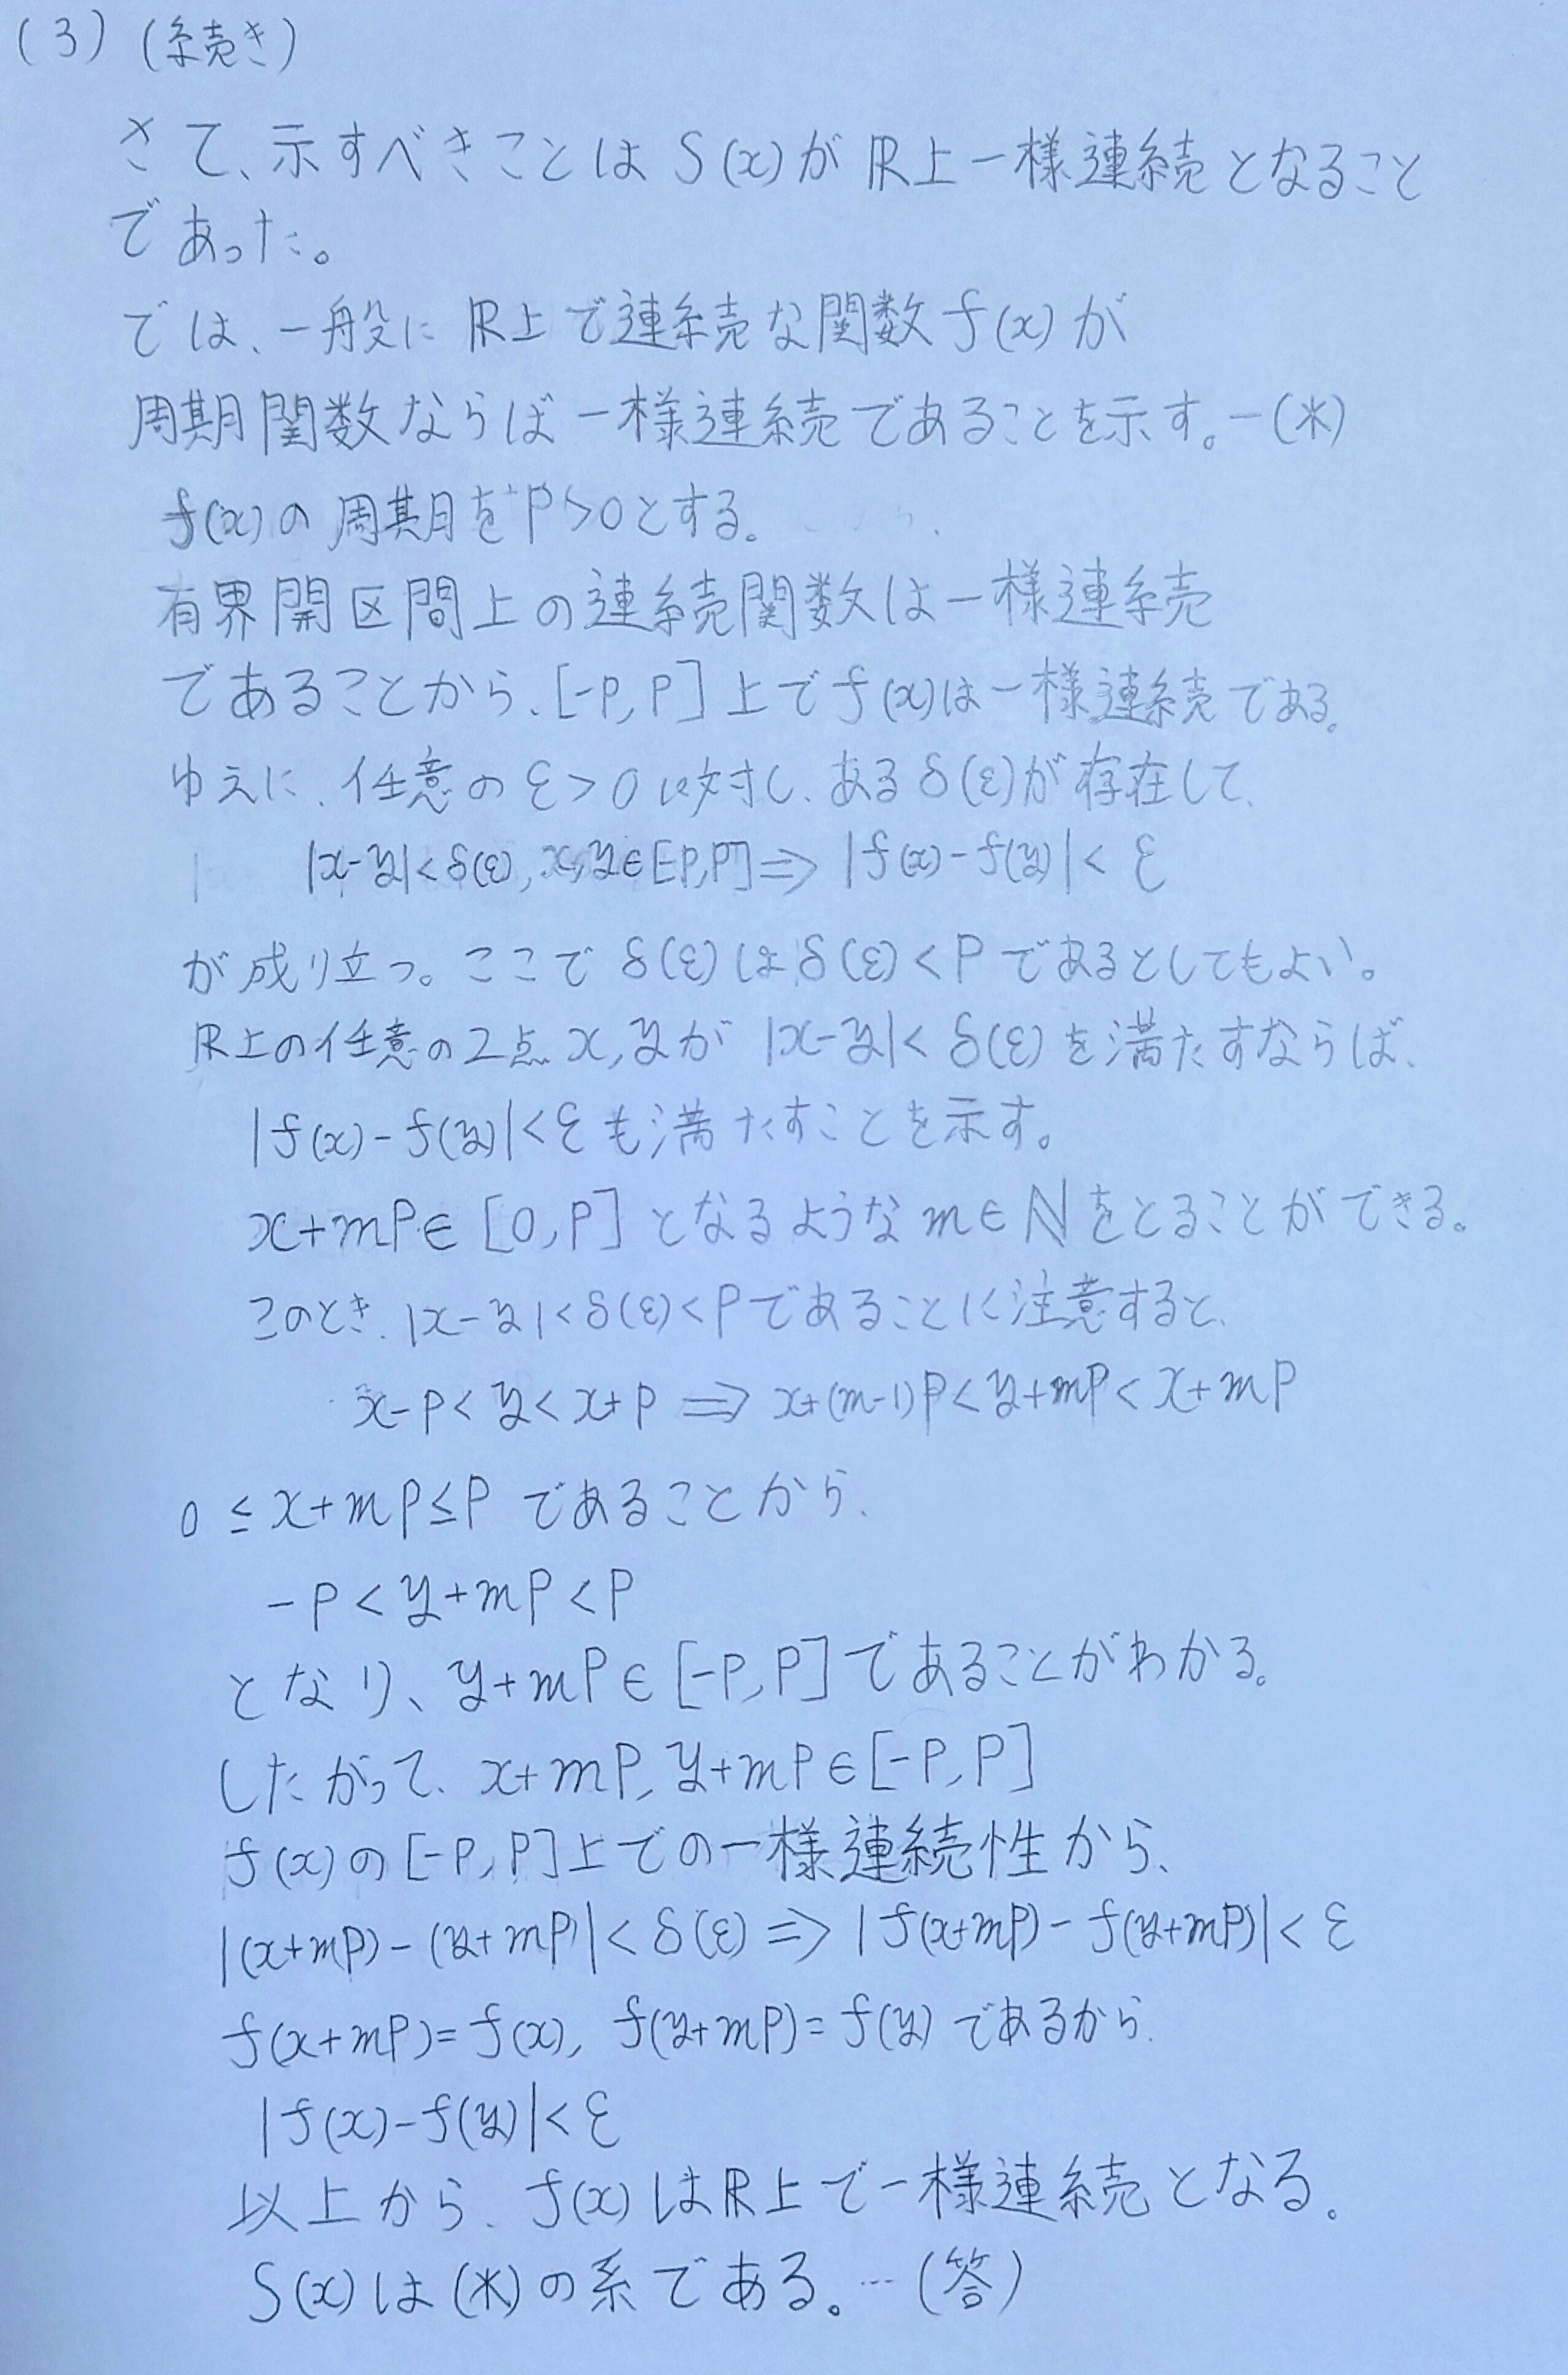 (3) (続き)
さて、示すべきことは S(x)が ℝ上一様連続となること
であった。
では、一般に ℝ上で連続な関数 f(x) が
周期関数ならば一様連続であることを示す。―(*)
f(x)の周期を P>0とする。
有界開区間上の連続関数は一様連続
であることから、[-P, P] 上で f(x)は一様連続である。
ゆえに、任意の ε>0 に対し、ある δ(ε)が存在して、
|x-y|<δ(ε), x,y∈[-P,P] ⟹ |f(x)-f(y)|<ε
が成り立つ。ここで δ(ε)は δ(ε)<P であるとしてもよい。
ℝ上の任意の2点 x, y が |x-y|<δ(ε) を満たすならば、
|f(x)-f(y)|<ε も満たすことを示す。
x+mP∈[0,P] となるような m∈ℕをとることができる。
このとき、|x-y|<δ(ε)<Pであることに注意すると、
x-P<y<x+P ⟹ x+(m-1)P<y+mP<x+mP
0≤x+mP≤P であることから、
-P<y+mP<P
となり、y+mP∈[-P,P]であることがわかる。
したがって、x+mP, y+mP∈[-P,P]
f(x)の[-P,P]上での一様連続性から、
|(x+mP)-(y+mP)|<δ(ε) ⟹ |f(x+mP)-f(y+mP)|<ε
f(x+mP)=f(x), f(y+mP)=f(y) であるから、
|f(x)-f(y)|<ε
以上から、f(x)はℝ上で一様連続となる。
S(x)は(*)の系である。…(答)